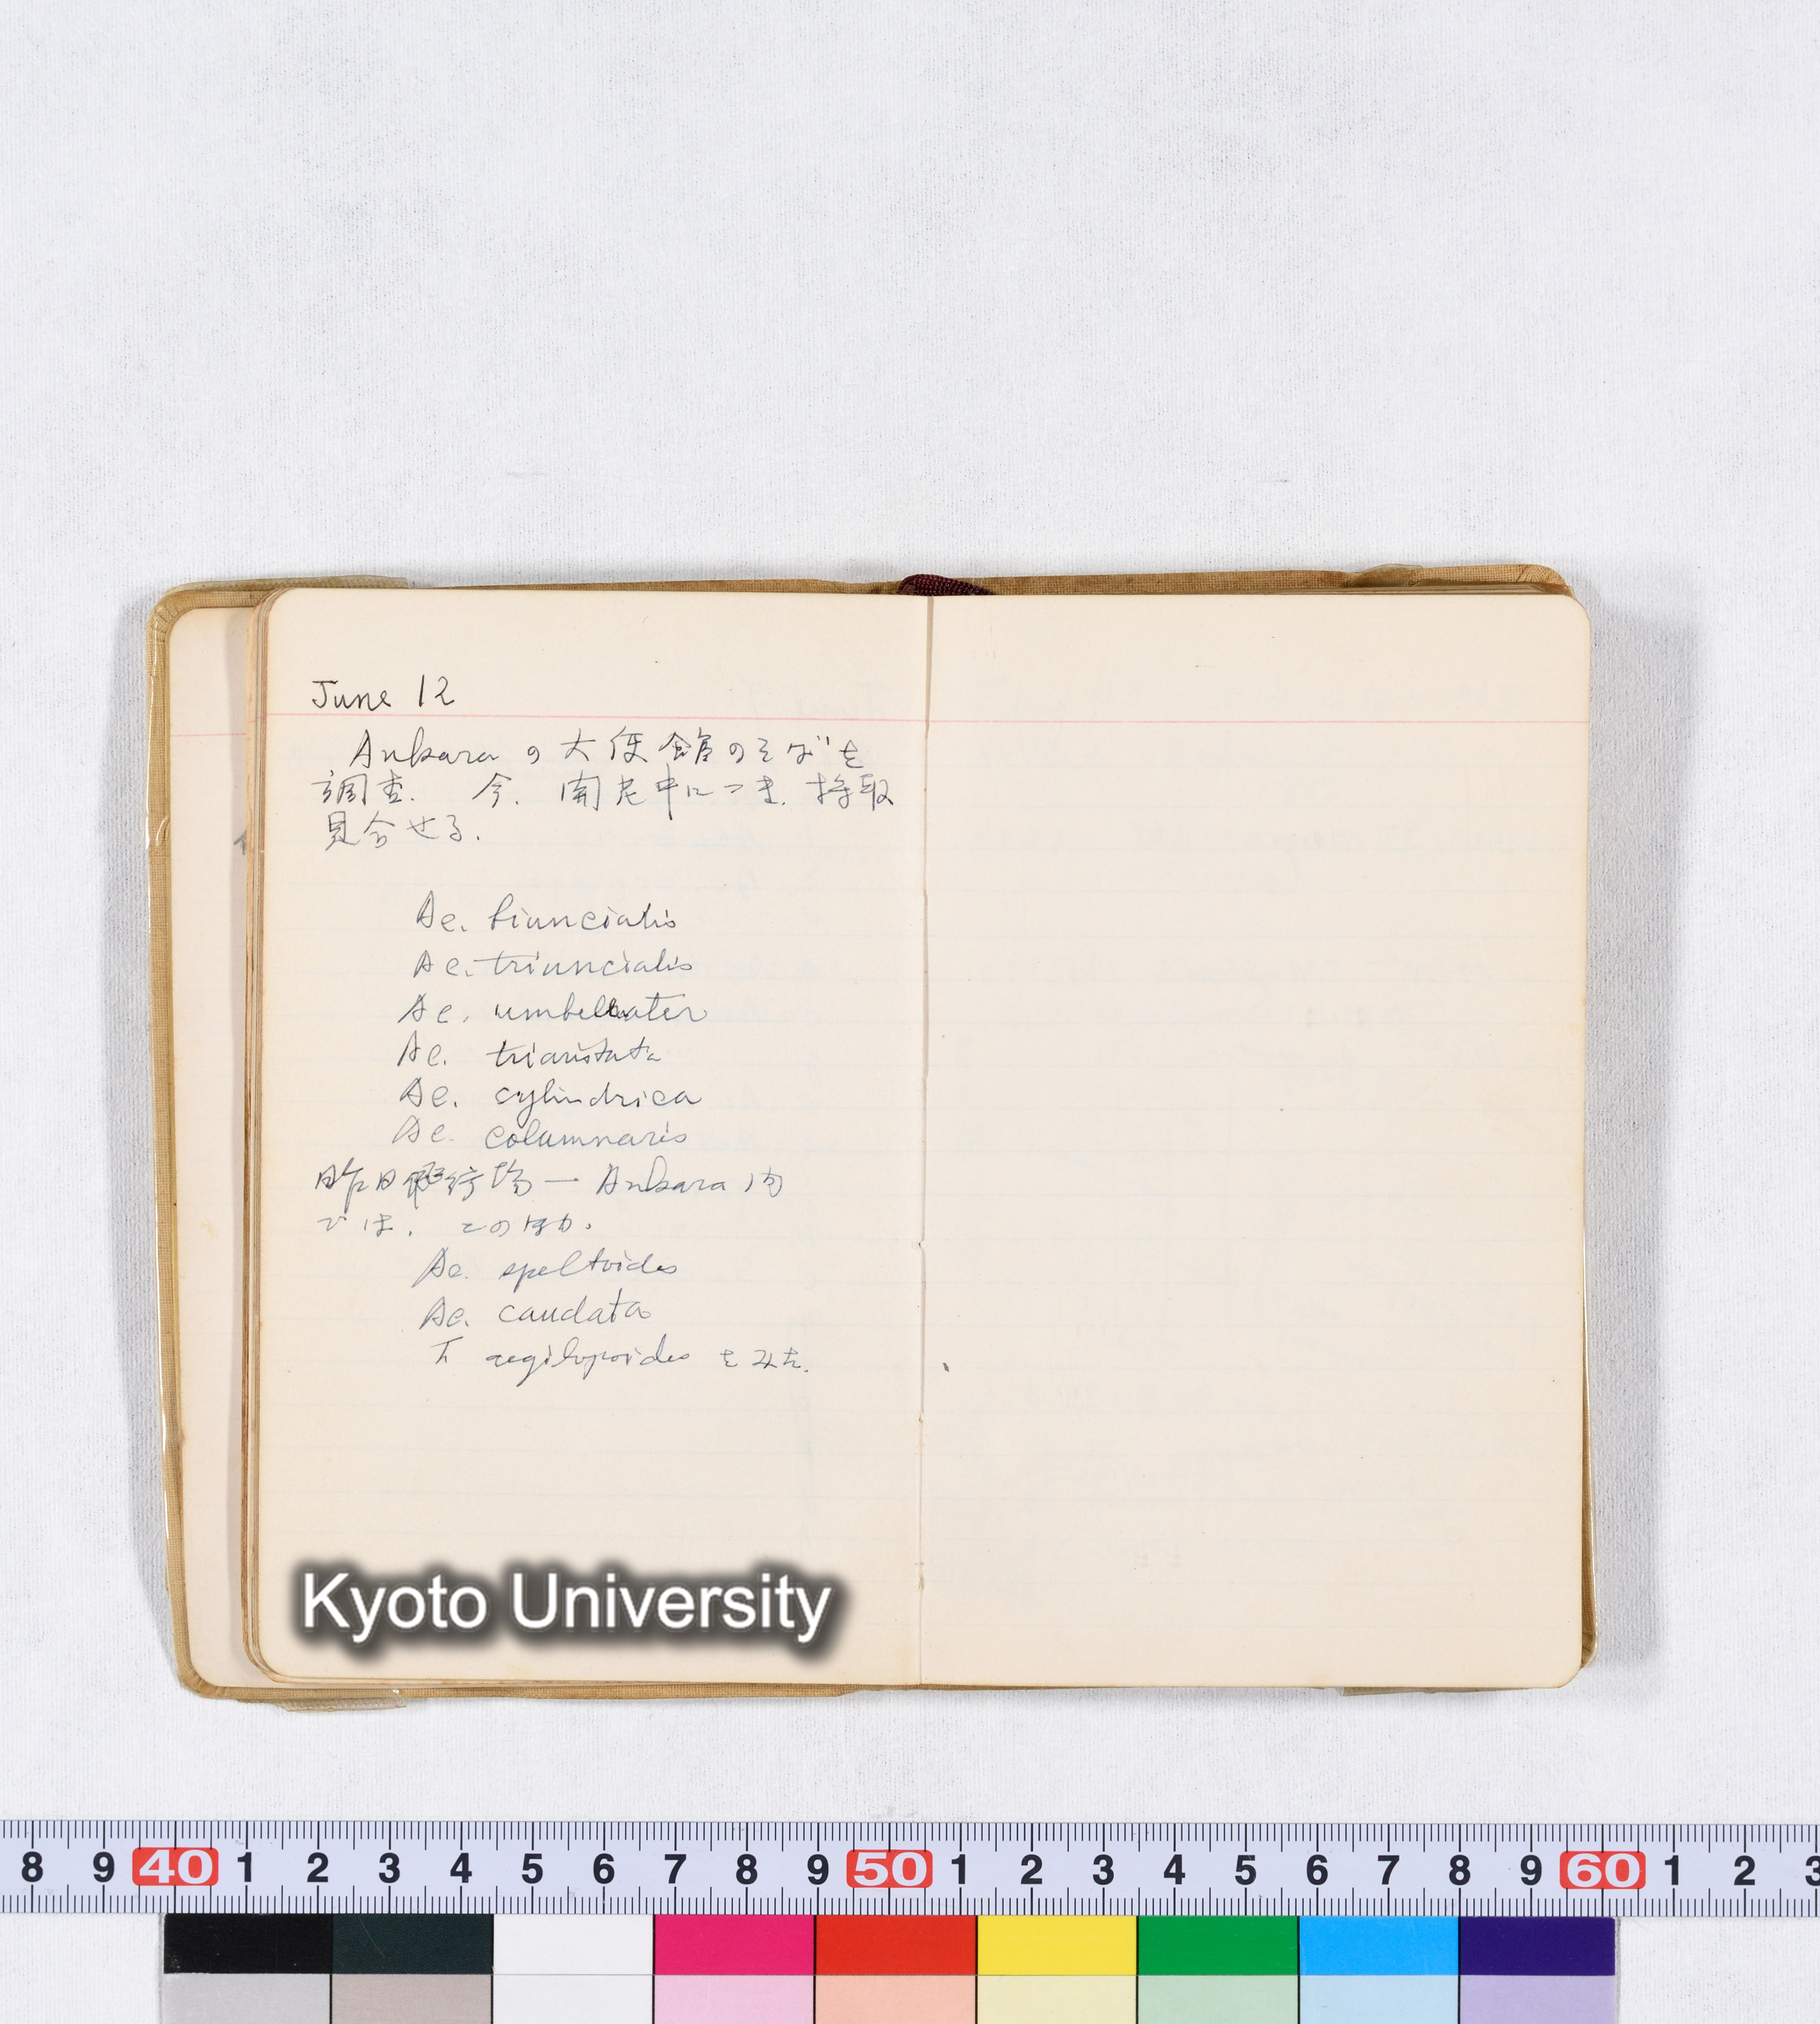 June 12
Ankara の大使館のそばを
調査. 今. 開花中につき. 採取
見合せる.
Ae. biuncialis
Ae. triuncialis
Ae. umbellater
Ae. triaristata
Ae. cylindrica
Ae. columnaris
昨日飛行場ー Ankara 内
では. このほか.
Ae. speltoides
Ae. caudata
T aegilopoides をみた.
Kyoto University
8 9 40 1 2 3 4 5 6 7 8 9 50 1 2 3 4 5 6 7 8 9 60 1 2 3